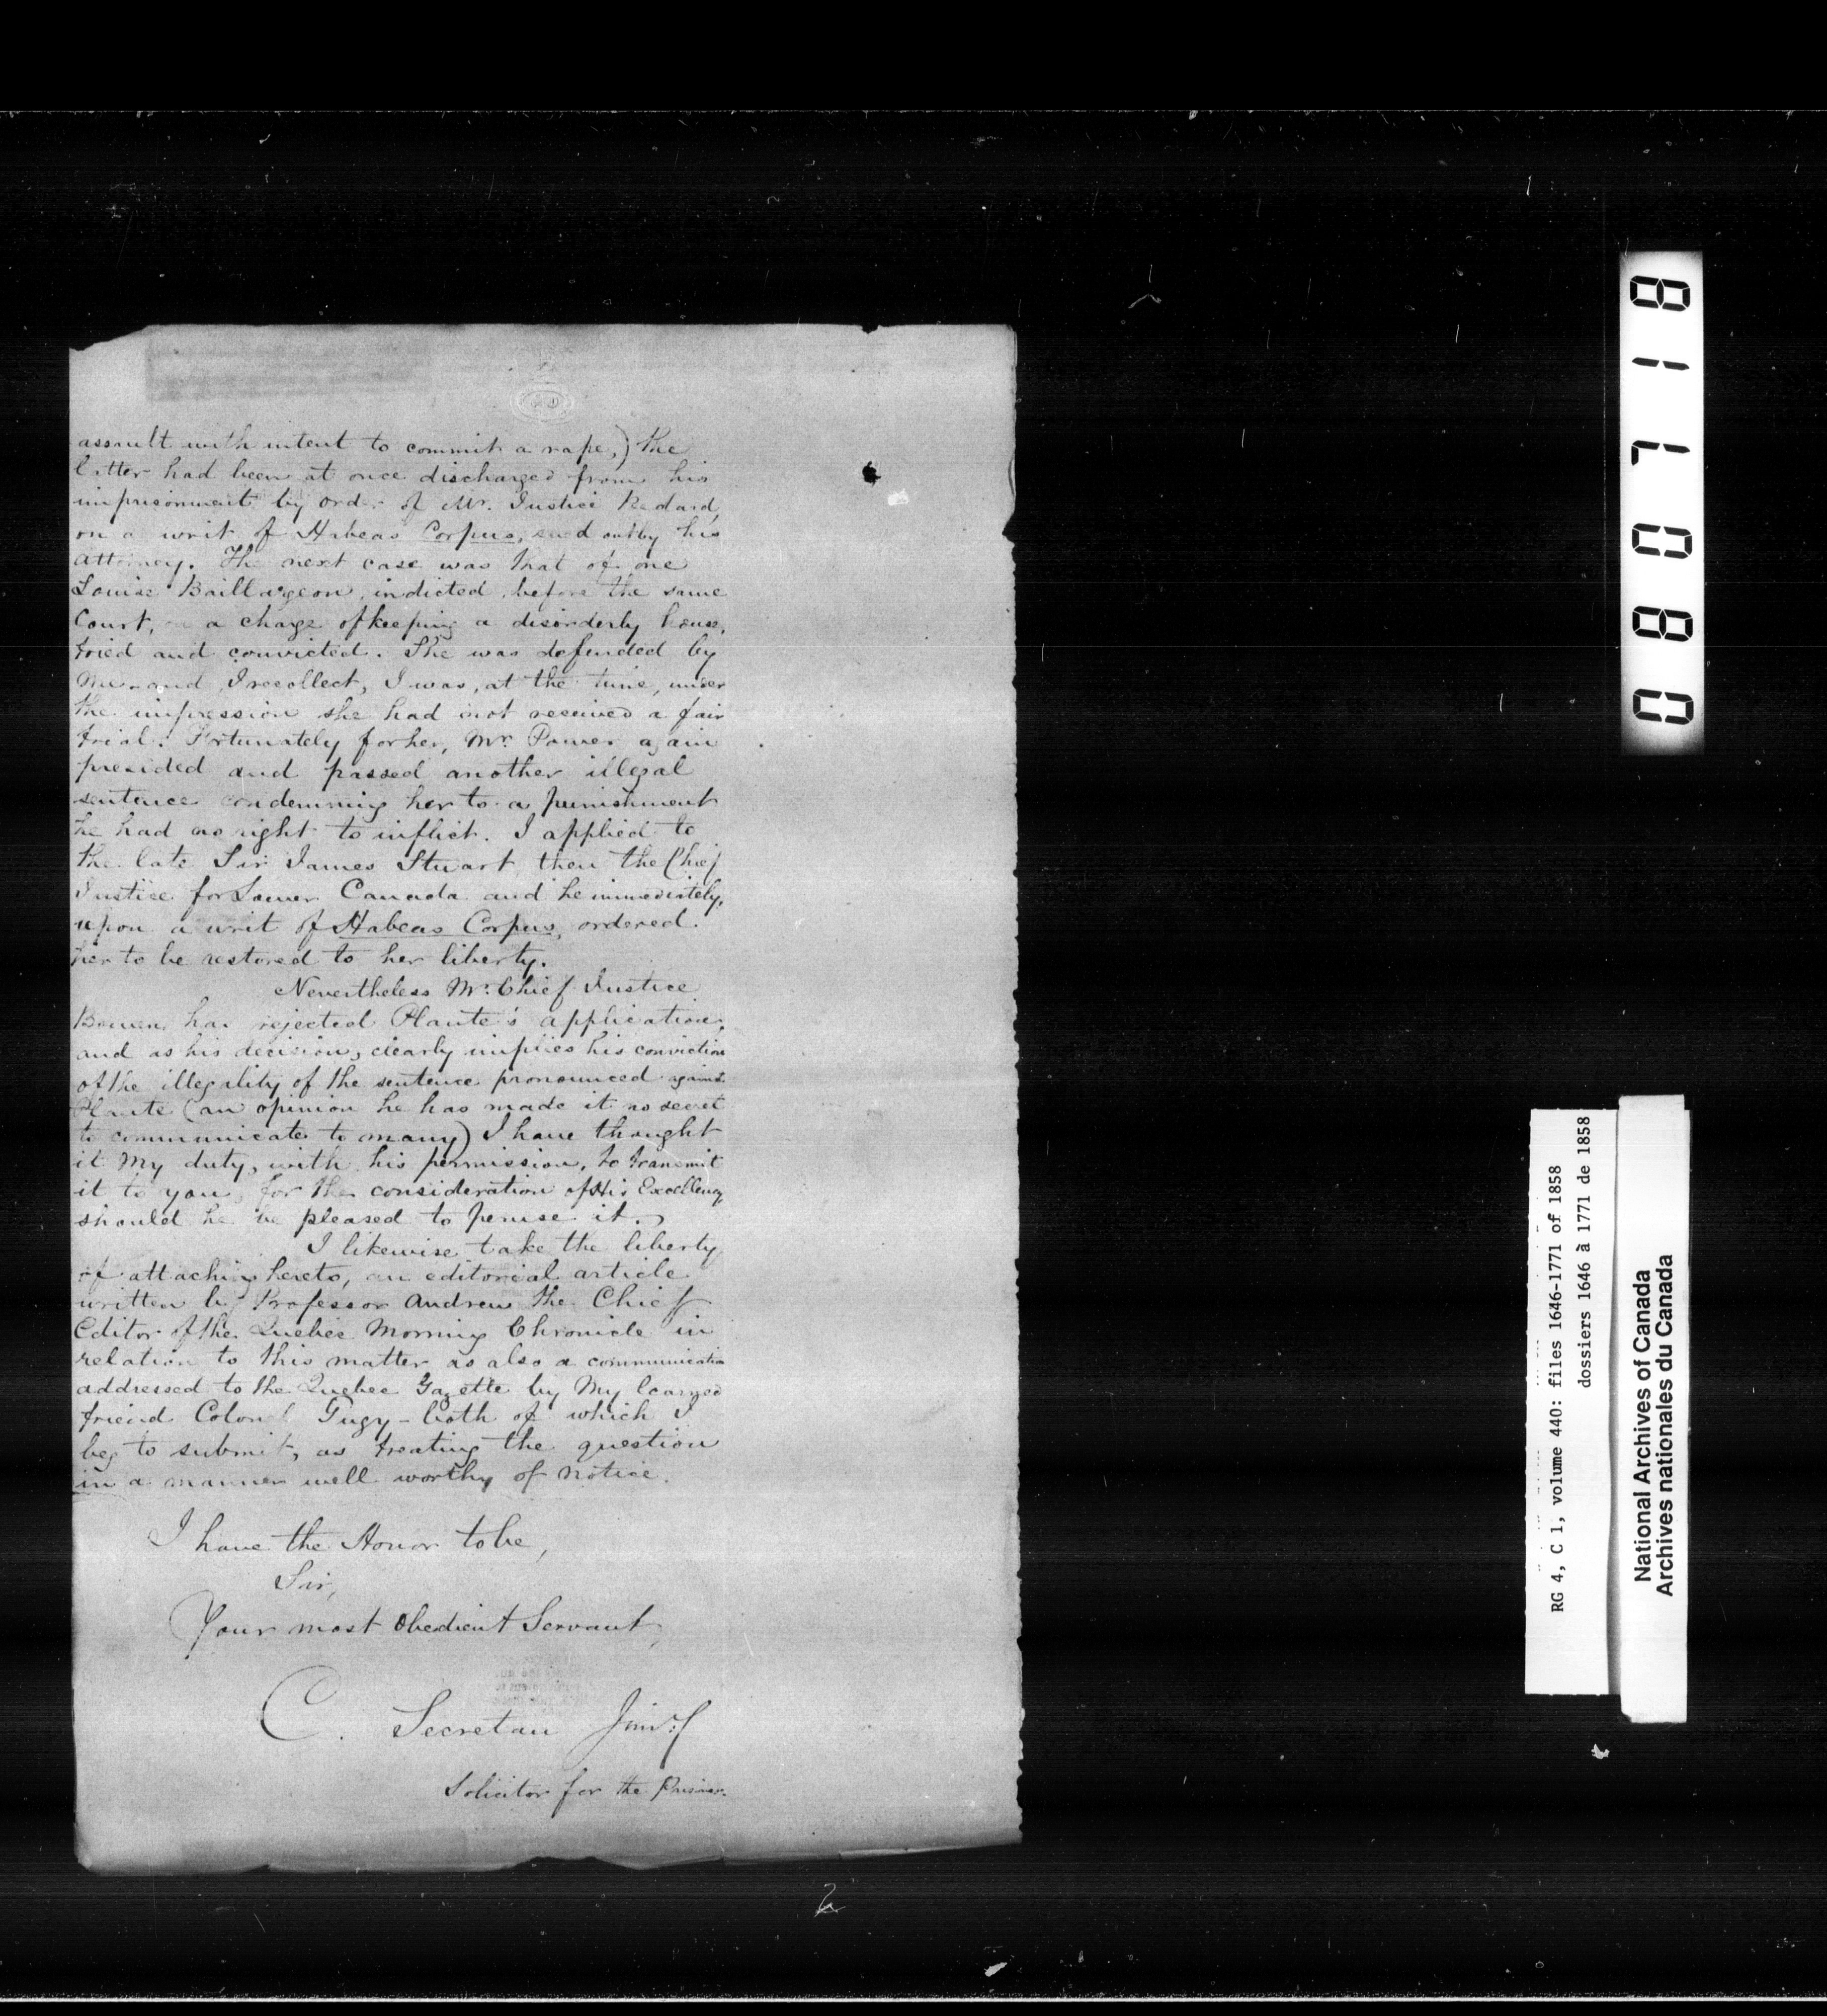 assault with intent to commit a rape,) the
latter had been at once discharged from his
imprisonment by order of Mr. Justice Bedard,
on a writ of Habeas Corpus, sued out by his
attorney. The next case was that of one
Louise Baillargeon, indicted before the same
Court, on a charge of keeping a disorderly house,
tried and convicted. She was defended by
me and I recollect, I was, at the time, under
the impression she had not received a fair
trial. Fortunately for her, Mr. Power again
presided and passed another illegal
sentence condemning her to a punishment
he had no right to inflict. I applied to
the late Sir James Stuart then the Chief
Justice for Lower Canada and he immediately,
upon a writ of Habeas Corpus, ordered
her to be restored to her liberty.
Nevertheless Mr. Chief Justice
Bowen has rejected Plante's application,
and as his decision, clearly implies his conviction
of the illegality of the sentence pronounced against
Plante (an opinion he has made it no secret
to communicate to many) I have thought
it my duty, with his permission, to transmit
it to you, for the consideration of His Excellency
should he be pleased to peruse it.
I likewise take the liberty
of attaching hereto, an editorial article
written by Professor Andrew the Chief
Editor of the Quebec Morning Chronicle in
relation to this matter as also a communication
addressed to the Quebec Gazette by My learned
friend Colonel Gugy - both of which I
beg to submit, as treating the question
in a manner well worthy of notice.
I have the Honor to be,
Sir,
Your most Obedient Servant,
C. Secretan Junr.
Solicitor for the Prisoner.
2
080718
RG 4, C 1, volume 440: files 1646-1771 of 1858
dossiers 1646 à 1771 de 1858
National Archives of Canada
Archives nationales du Canada